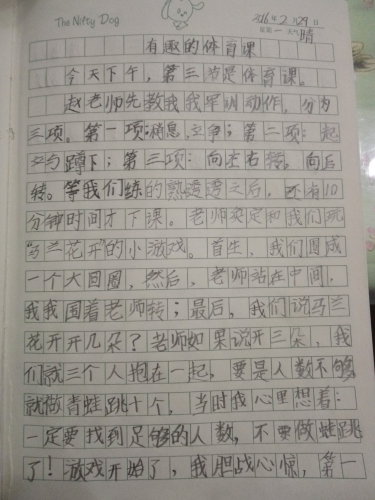 The Nifty Dog
2016年2月29日
星期一 天气晴
有趣的体育课
今天下午，第三节是体育课。
赵老师先教我我军训动作，分为
三项。第一项：稍息，立正；第二项：起
立，蹲下；第三项：向左右转。向后
转。等我们练的熟透透之后，还有10
分钟时间才下课。老师决定和我们玩
“马兰花开”的小游戏。首先，我们围成
一个大回圈，然后，老师站在中间，
我我围着老师转；最后，我们说马兰
花开开几朵？老师如果说开三朵，我
们就三个人抱在一起，要是人数不够
就做青蛙跳十个，当时我心里想着：
一定要找到足够的人数，不要做蛙跳
了！游戏开始了，我胆战心惊，第一